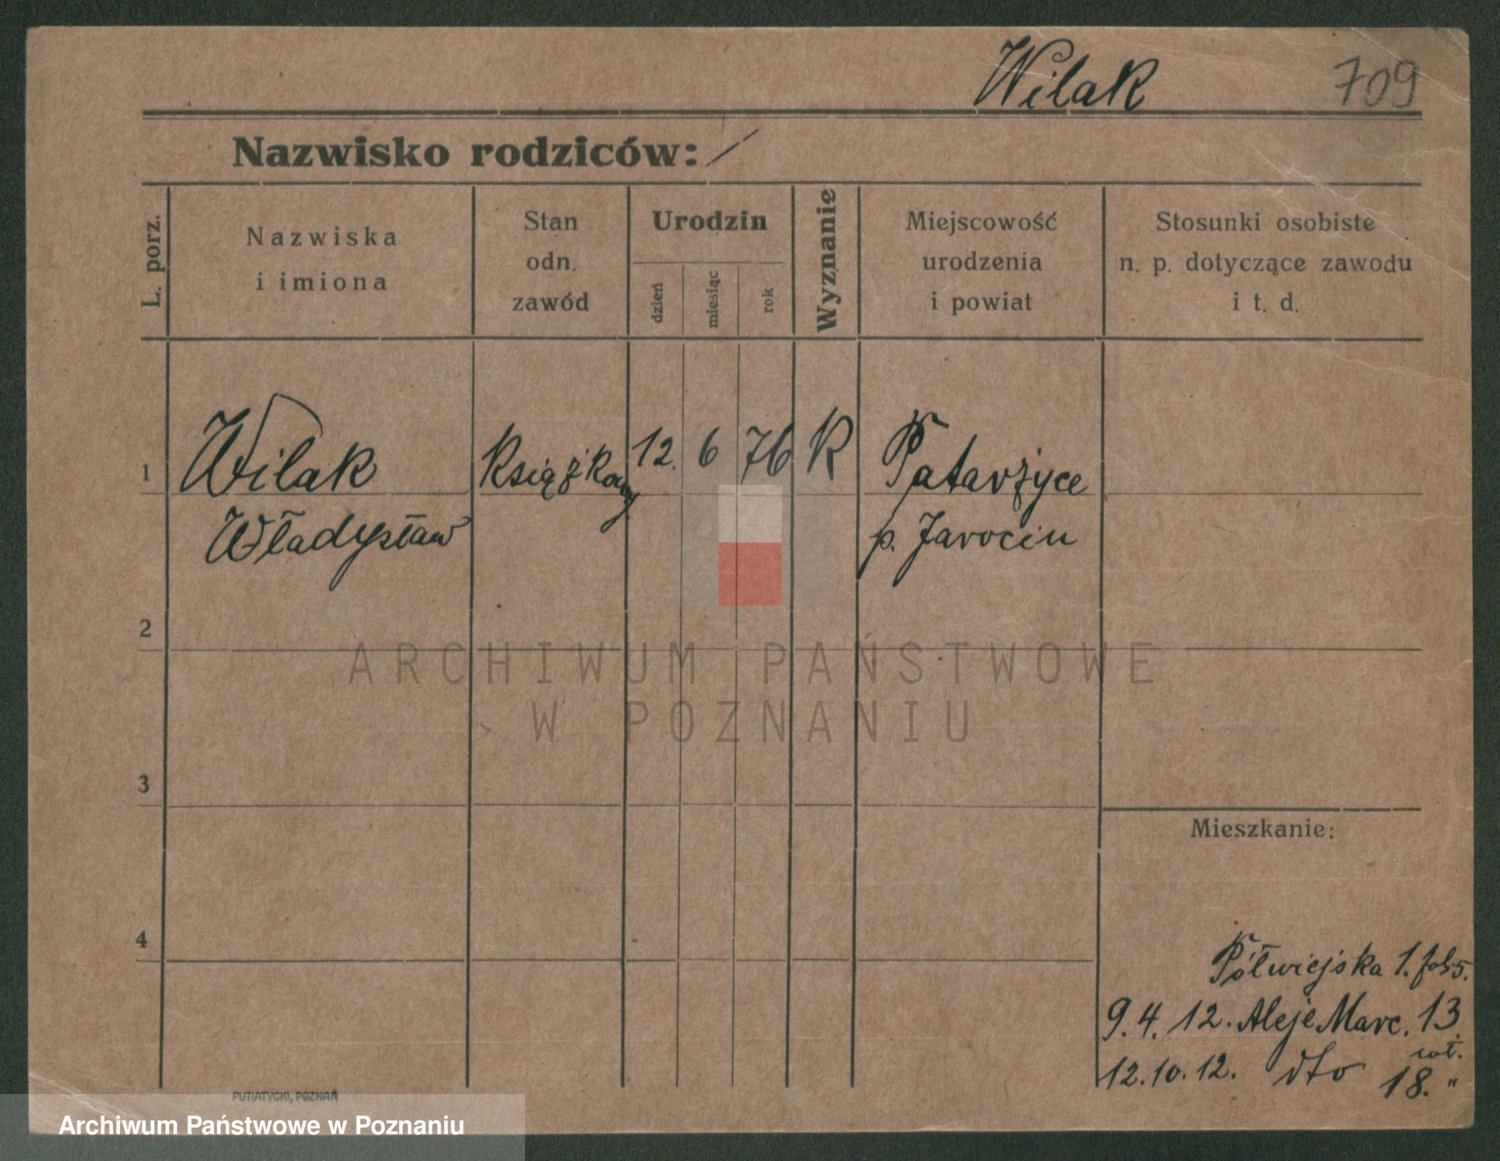 Wilak 709
Nazwisko rodziców: /
L. porz.
Nazwiska
i imiona
Stan
odn.
zawód
Urodzin
dzień
miesiąc
rok
Wyznanie
Miejscowość
urodzenia
i powiat
Stosunki osobiste
n. p. dotyczące zawodu
i t. d.
1 Wilak Książkowy 12. 6 76 K Patarzyce
Władysław p. Jarocin
2
ARCHIWUM PAŃSTWOWE
W POZNANIU
3
Mieszkanie:
4
Półwiejska 1.
9.4.12. Aleje Marc. 13.
12.10.12. dto 18. "
PUTIATYCKI, POZNAŃ
Archiwum Państwowe w Poznaniu